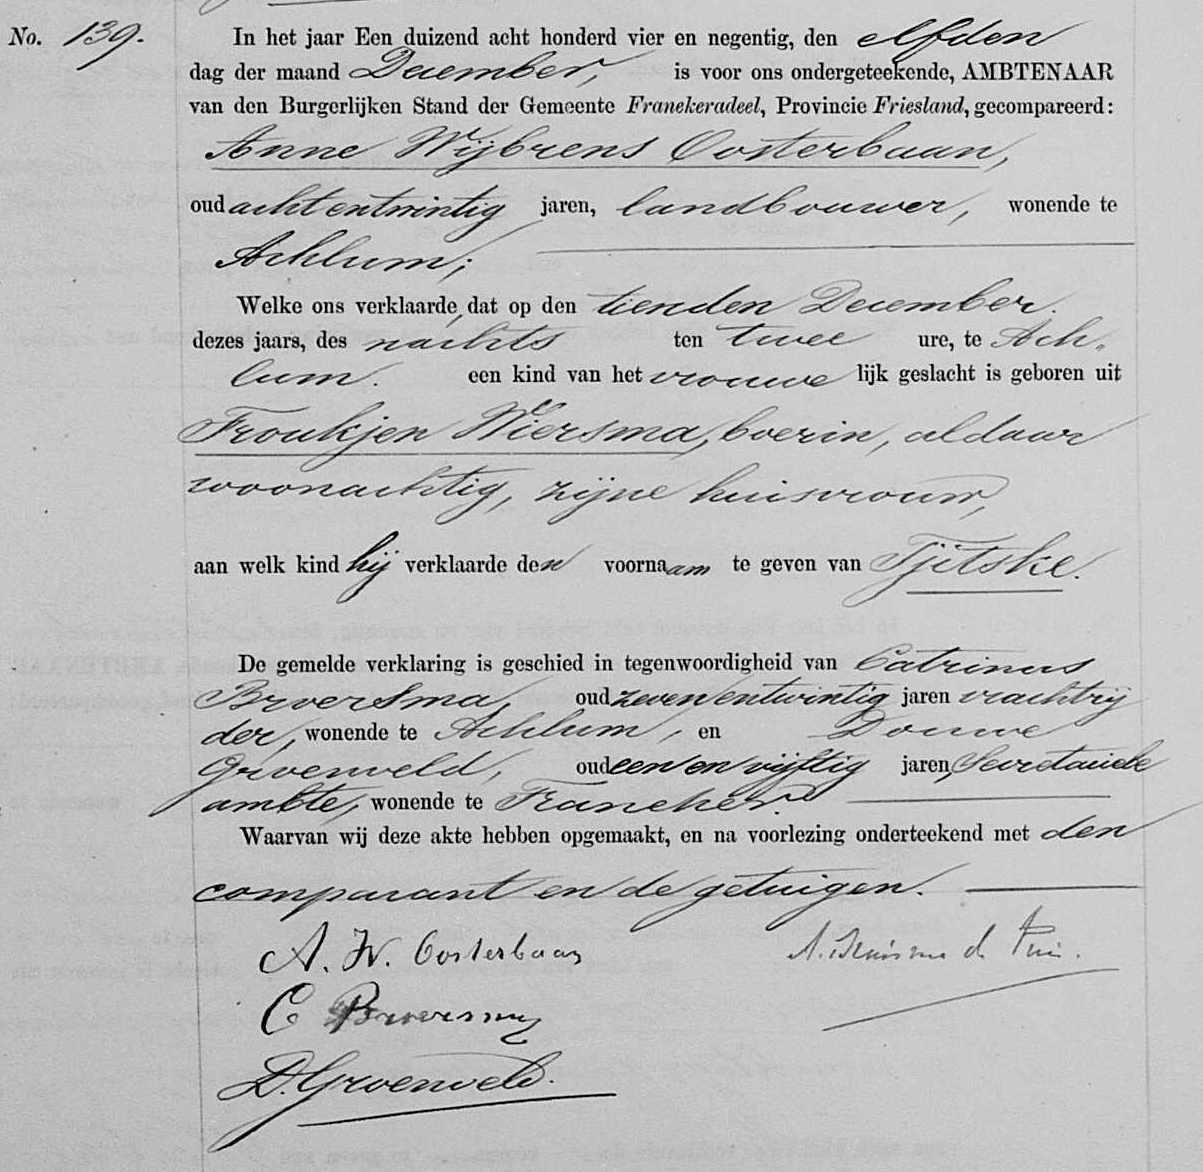 No. 139. In het jaar Een duizend acht honderd vier en negentig, den elfden
dag der maand December, is voor ons ondergeteekende, AMBTENAAR
van den Burgerlijken Stand der Gemeente Franekeradeel, Provincie Friesland, gecompareerd:
Anne Wijbrens Oosterbaan,
oud achtentwintig jaren, landbouwer, wonende te
Achlum;
Welke ons verklaarde, dat op den tienden December
dezes jaars, des nachts ten twee ure, te Ach-
lum. een kind van het vrouwelijk geslacht is geboren uit
Froukjen Wiersma, boerin, aldaar
woonachtig, zijne huisvrouw,
aan welk kind hij verklaarde den voornaam te geven van Tjitske.
De gemelde verklaring is geschied in tegenwoordigheid van Catrinus
Broersma, oud zevenentwintig jaren vrachtrij
der, wonende te Achlum, en Douwe
Groenveld, oud een en vijftig jaren, Secretarie
ambte, wonende te Franeker.
Waarvan wij deze akte hebben opgemaakt, en na voorlezing onderteekend met den
comparant en de getuigen.
A. W. Oosterbaan
C Broersma
D. Groenveld.